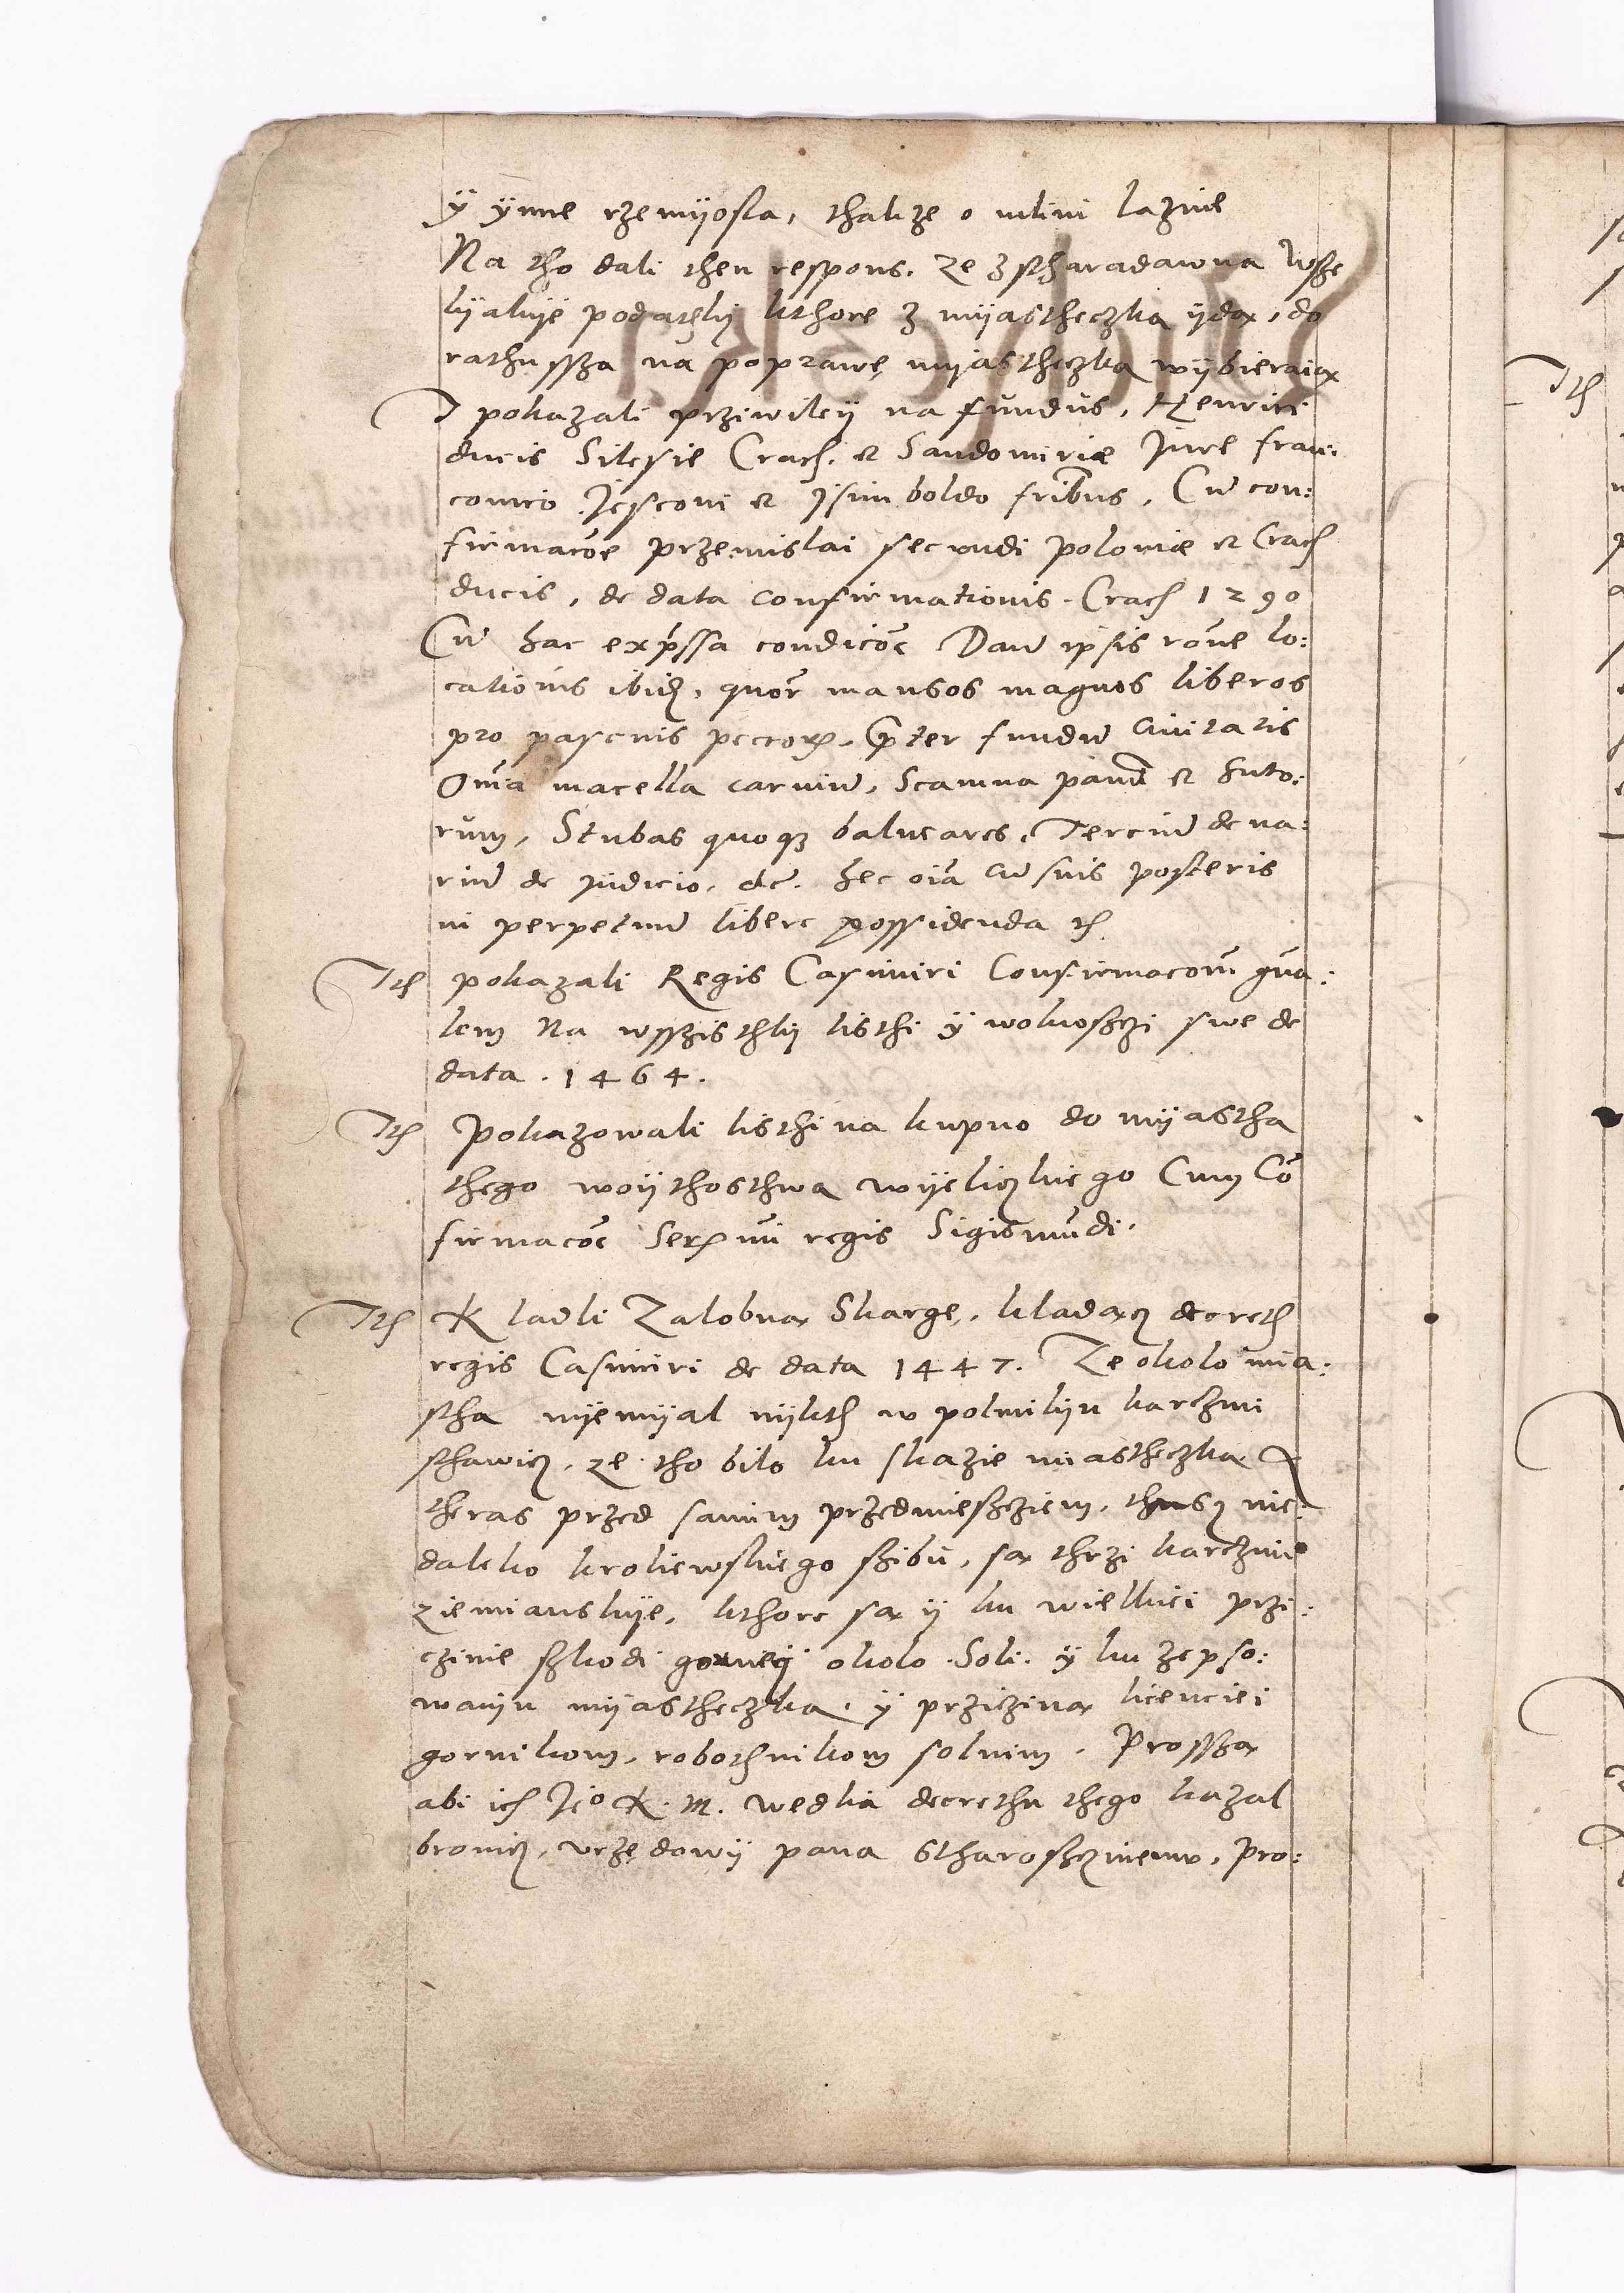 ÿ ÿnne rzemÿosla, thakze o mlini lazine
Na tho dali then respons. ze z stharadawna Wsze
lÿakÿe podatkÿ kthore z mÿastheczka ÿdą, do
rathussza na poprawę mÿastheczka wÿbieraią
I pokazali prziwileÿ na fundus, Henrici
ducis Silesie Crach. et Sandomiriæ Jure fran:
conico Jesconi et Jsimboldo fribus, Cū con:
firmacōe przemislai secundi poloniæ et Crach
ducis, de data confirmationis. Crach 1290
Cū hac expressa condicōe Dam ipsis rōne lo:
cationis ibid, quor mansos magnos liberos
pro pascuis pecorum, Preter fundū civitatis
Omnia macella carniū, Scamna panū et Suto:
rum, Stubas quoque balneares, Terciū dena:
riū de judicio, etc. hec oīa cū suis posteris
in perpetuū libere possidenda etc
Ith pokazali Regis Casimiri Confirmacom gna:
lem Na wsszisthkÿ listhi ÿ wolnosczi swe de
data . 1464.
Ith Pokazowali listhi na kupno do mÿastha
thego woÿthosthwa wÿelicżkiego Cum Cō
firmacōe Sermi regis Sigismūdi.
Ith Kladli Zalobną Skargę, kladącz decreth
regis Casimiri de data 1447. Ze okolo mia:
stha nÿemÿal nÿkth w polmilÿu karczmi
sthawicz, ze tho bilo ku skazie miastheczka A
theras przed samim przedmiescziem, thusz nie:
daleko kroliewskiego szibu, są thrzi karczmi
ziemianskÿe, kthore są ÿ ku wielkiei przi:
czinie szkodi gorneÿ okolo Soli. ÿ ku zepso:
wanÿu mÿastheczka, ÿ prziczina licenciei
gornikom, robothnikom solnim. Prosszą
abi ich Jeo K. M. wedlia decrethu thego kazal
bronicz, vrzędowÿ pana Stharosczinemu, Pro: